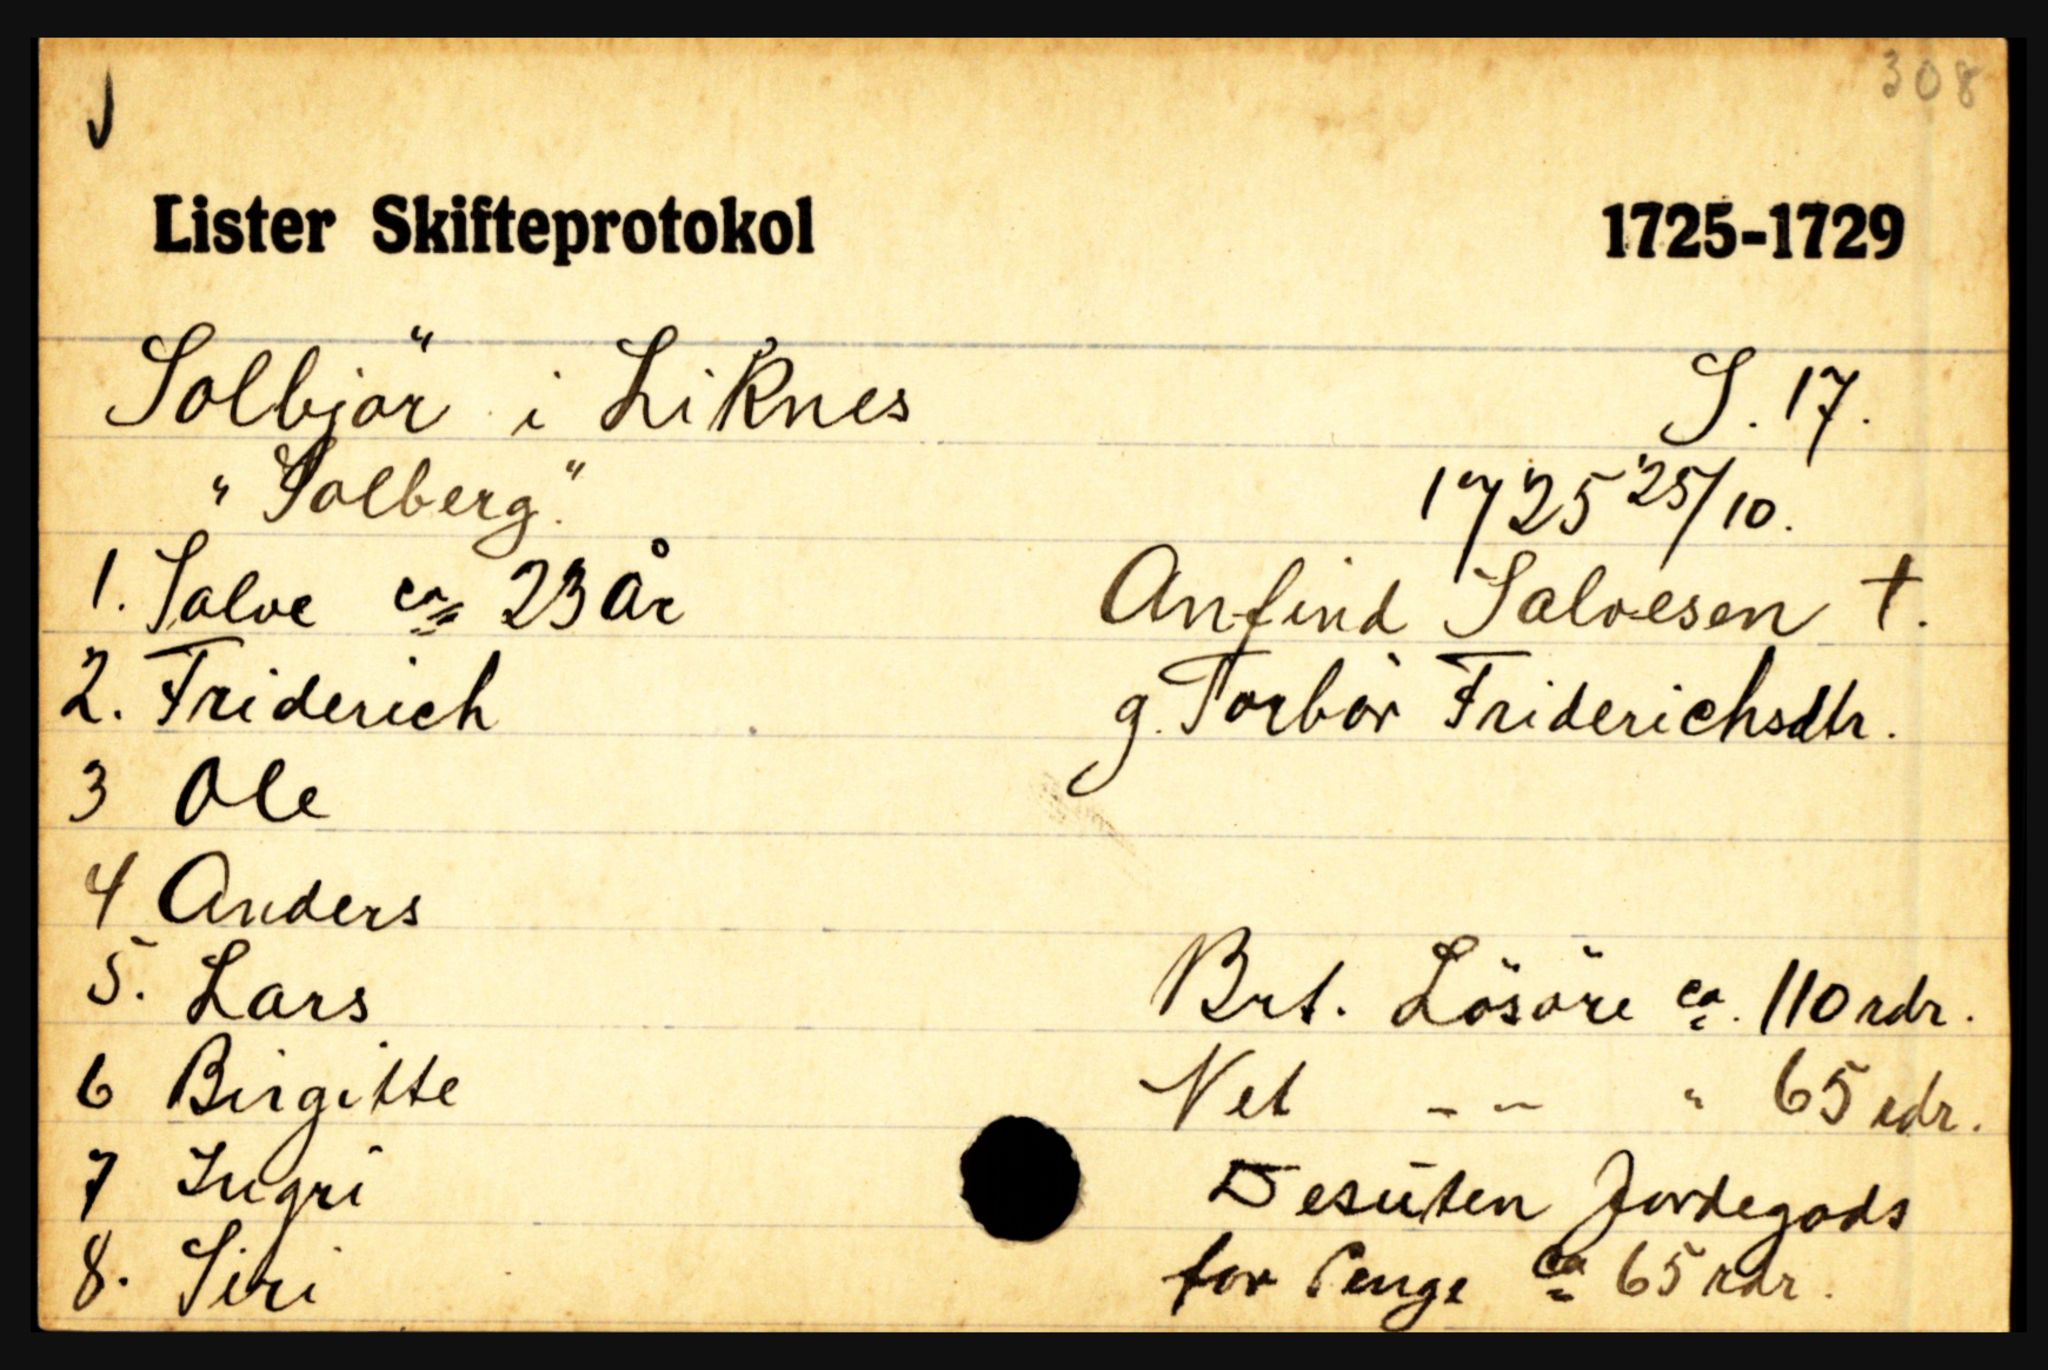 308
Lister Skifteprotokol 1725-1729
Solbjör i Liknes S. 17.
"Solberg." 1725 25/10.
1. Salve ca 23 år Anfind Salvesen †.
2. Friderich g. Torbör Friderichsdtr.
3 Ole
4 Anders
5. Lars Brt. Lösöre ca. 110 rdr.
6 Birgitte Net - - " 65 rdr.
7 Ingri Desuten Jordegods
8. Siri for Penge ca 65 rdr.